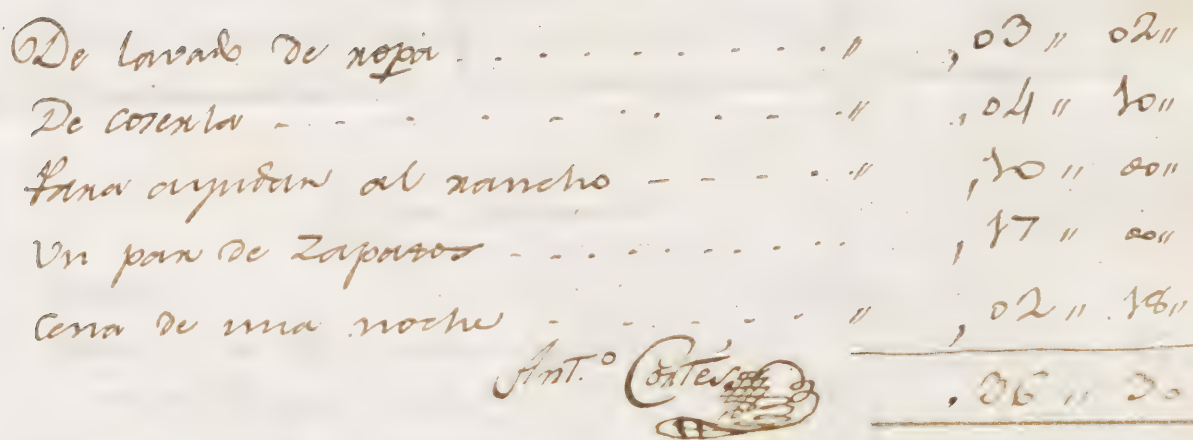 De lavado de ropa . . . . . . . . . . " ,03 " 02"
De coserla - - - . . . . - - - - " ,04 " 10"
Para ayudar al rancho - - - - . " ,10 " 00"
Un par de Zapatos - - . . . . . . . . , 17 " 00"
Cena de una noche - - - - - - " , 02 " 18"
Ant.º Cortés . 36 " 30